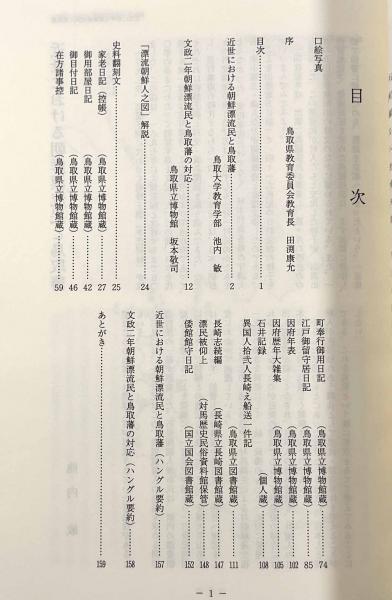 目次
口絵写真
序 鳥取県教育委員会教育長 田渕康允
目次……………1
近世における朝鮮漂流民と鳥取藩……………2
鳥取大学教育学部 池内 敏
文政二年朝鮮漂流民と鳥取藩の対応……………12
鳥取県立博物館 坂本敬司
「漂流朝鮮人之図」解説……………24
史料翻刻文……………25
家老日記（控帳）（鳥取県立博物館蔵）27
御用部屋日記（鳥取県立博物館蔵）42
御目付日記（鳥取県立博物館蔵）46
在方諸事控（鳥取県立博物館蔵）59
町奉行御用日記（鳥取県立博物館蔵）74
江戸御留守居日記（鳥取県立博物館蔵）85
因府年表（鳥取県立博物館蔵）102
因府歴年大雑集（鳥取県立博物館蔵）105
石井記録（個人蔵）108
異国人拾弐人長崎え船送一件記
（鳥取県立図書館蔵）111
長崎志続編（長崎県立長崎図書館蔵）147
漂民被仰上（対馬歴史民俗資料館保管）148
倭館館守日記（国立国会図書館蔵）152
近世における朝鮮漂流民と鳥取藩（ハングル要約）157
文政二年朝鮮漂流民と鳥取藩の対応（ハングル要約）158
あとがき……………159
－1－